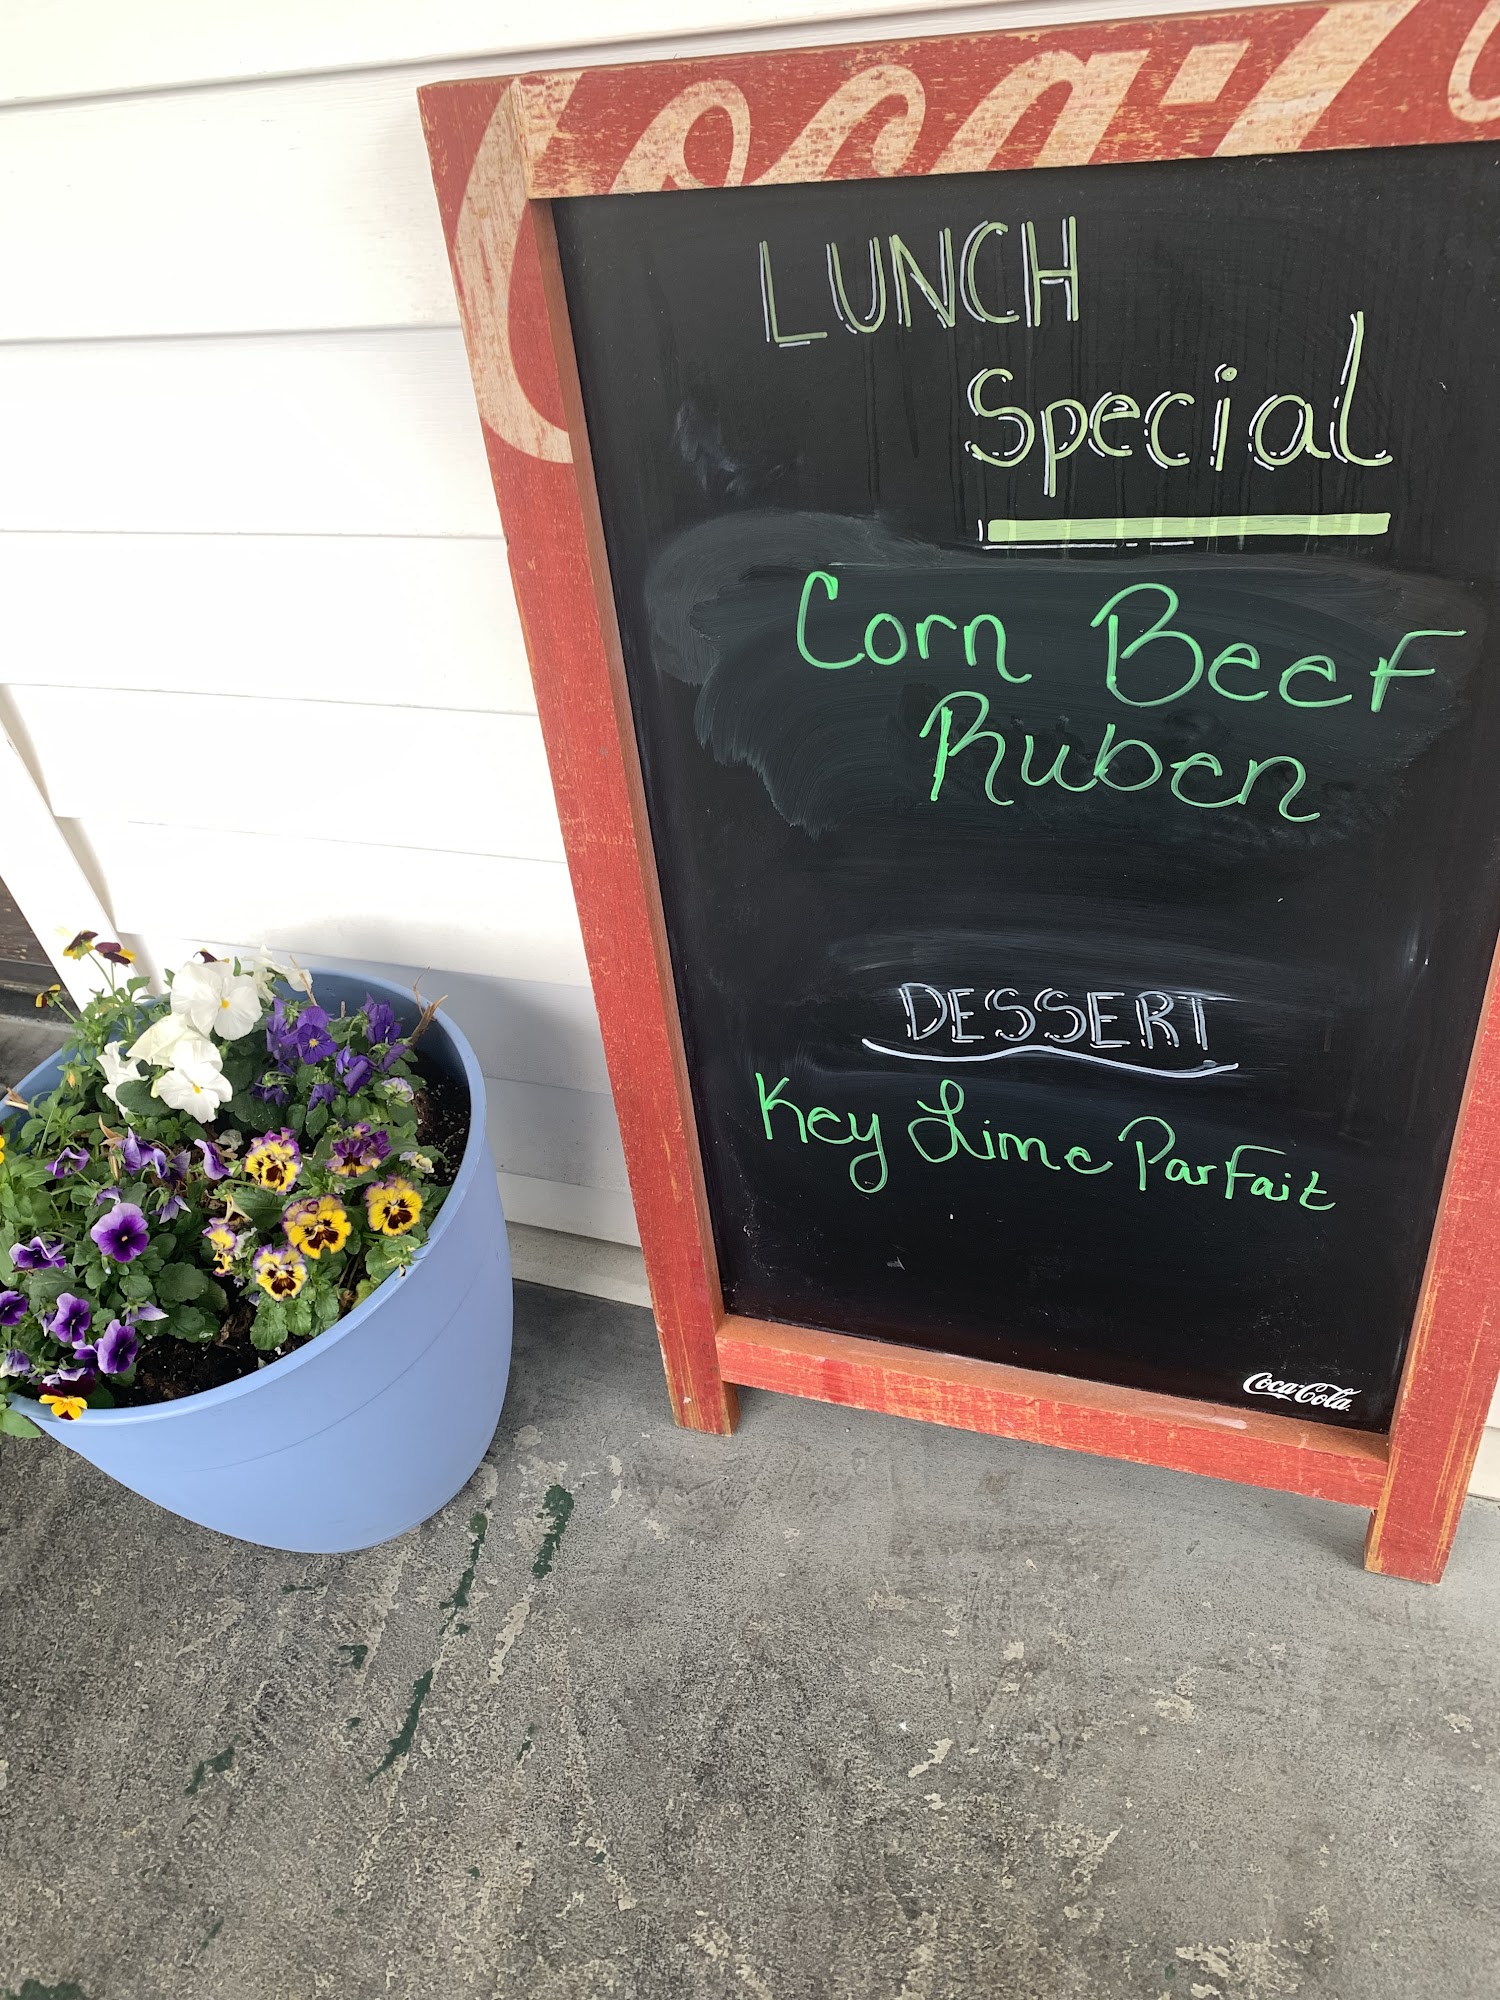 Coca-Co
LUNCH
Special
Corn Beef
Ruben
DESSERT
Key Lime Parfait
Coca-Cola